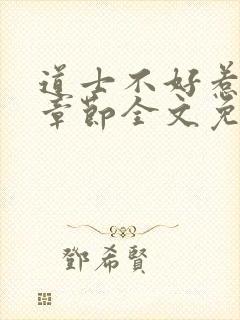 道士不好惹
章節全文免
鄧希賢